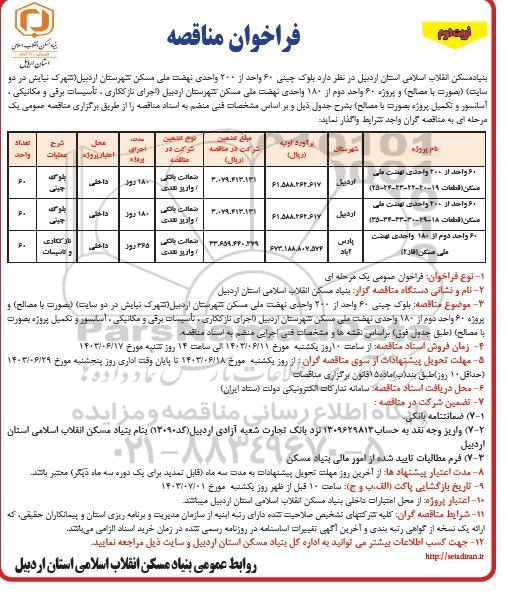 بنیاد مسکن انقلاب اسلامی
استان اردبیل
فراخوان مناقصه
نوبت دوم
بنیادمسکن انقلاب اسلامی استان اردبیل در نظر دارد بلوک چینی ۶۰ واحد از ۲۰۰ واحدی نهضت ملی مسکن شهرستان اردبیل(شهرک نیایش در دو
سایت) (بصورت با مصالح) و پروژه ۶۰ واحد دوم از ۱۸۰ واحدی نهضت ملی مسکن شهرستان اردبیل (اجرای نازککاری ، تأسیسات برقی و مکانیکی ،
آسانسور و تکمیل پروژه بصورت با مصالح) بشرح جدول ذیل و بر اساس مشخصات فنی منضم به اسناد مناقصه را از طریق برگزاری مناقصه عمومی یک
مرحله ای به مناقصه گران واجد شرایط واگذار نماید:
نام پروژه شهرستان برآورد اولیه (ریال) مبلغ تضمین شرکت در مناقصه (ریال) نوع تضمین شرکت در مناقصه مدت اجرای پروژه محل اعتبارپروژه شرح عملیات تعداد واحد
۶۰ واحد از ۲۰۰ واحدی نهضت ملی مسکن(قطعات ۱۹-۲۰-۲۲-۲۳-۲۴-۲۵) اردبیل ۶۱.۵۸۸.۲۶۲.۶۱۷ ۳.۰۷۹.۴۱۳.۱۳۱ ضمانت بانکی / واریز نقدی ۱۸۰ روز داخلی بلوک چینی ۶۰
۶۰ واحد از ۲۰۰ واحدی نهضت ملی مسکن(قطعات ۱۸-۲۹-۳۰-۳۳-۳۴-۳۵) اردبیل ۶۱.۵۸۸.۲۶۲.۶۱۷ ۳.۰۷۹.۴۱۳.۱۳۱ ضمانت بانکی / واریز نقدی ۱۸۰ روز داخلی بلوک چینی ۶۰
۶۰ واحد دوم از ۱۸۰ واحدی نهضت ملی مسکن(فاز۲) پارس آباد ۶۷۳.۱۸۸.۸۰۷.۵۷۴ ۳۳.۶۵۹.۴۴۰.۳۷۹ ضمانت بانکی / واریز نقدی ۳۶۵ روز داخلی نازککاری و تاسیسات ۶۰
۱- نوع فراخوان: فراخوان عمومی یک مرحله ای
۲- نام و نشانی دستگاه مناقصه گزار: بنیاد مسکن انقلاب اسلامی استان اردبیل
۳- موضوع مناقصه: بلوک چینی ۶۰ واحد از ۲۰۰ واحدی نهضت ملی مسکن شهرستان اردبیل(شهرک نیایش در دو سایت) (بصورت با مصالح) و
پروژه ۶۰ واحد دوم از ۱۸۰ واحدی نهضت ملی مسکن شهرستان اردبیل (اجرای نازککاری ، تأسیسات برقی و مکانیکی ، آسانسور و تکمیل پروژه بصورت
با مصالح) (طبق جدول فوق) براساس نقشه ها و مشخصات فنی اجرایی منضم به اسناد مناقصه.
۴- زمان فروش اسناد مناقصه: از ساعت ۱۰ روز یکشنبه مورخ ۱۴۰۳/۰۶/۱۱ الی ساعت ۱۴ روز شنبه مورخ ۱۴۰۳/۰۶/۱۷
۵- مهلت تحویل پیشنهادات از سوی مناقصه گران : از روز یکشنبه مورخ ۱۴۰۳/۰۶/۱۸ تا پایان وقت اداری روز پنجشنبه مورخ ۱۴۰۳/۰۶/۲۹
(حداقل ۱۰ روز) طبق بند(ب)ماده۱۵ قانون برگزاری مناقصات
۶- محل دریافت اسناد مناقصه: سامانه تدارکات الکترونیکی دولت (ستاد ایران)
۷- تضمین شرکت در مناقصه :
۷-۱) ضمانتنامه بانکی.
۷-۲) واریز وجه نقد به حساب۱۳۰۹۶۲۹۸۱۳ نزد بانک تجارت شعبه آزادی اردبیل(کد۱۳۰۹۰) بنام بنیاد مسکن انقلاب اسلامی استان
اردبیل
۷-۳) فرم مطالبات تایید شده از امور مالی بنیاد مسکن
۸- مدت اعتبار پیشنهاد ها: از آخرین روز مهلت تحویل پیشنهادات به مدت سه ماه (قابل تمدید برای یک دوره سه ماه دیگر) معتبر باشند.
۹- تاریخ بازگشایی پاکت (الف،ب و ج): ساعت ۱۰ قبل از ظهر روز یکشنبه مورخ ۱۴۰۳/۰۷/۰۱
۱۰- اعتبار پروژه: از محل اعتبارات داخلی بنیاد مسکن انقلاب اسلامی استان اردبیل میباشند.
۱۱- شرایط مناقصه گران: کلیه شرکتهای تشخیص صلاحیت شده دارای رتبه ابنیه از سازمان مدیریت و برنامه ریزی استان و پیمانکاران حقیقی، که
ارائه یک نسخه از گواهی رتبه بندی و آخرین آگهی تغییرات اساسنامه در روزنامه رسمی شده در زمان خرید اسناد الزامی می‌باشد.
۱۲- جهت کسب اطلاعات بیشتر می توانید به اداره کل بنیاد مسکن استان اردبیل و سایت ذیل مراجعه نمایید.
http://setadiran.ir
روابط عمومی بنیاد مسکن انقلاب اسلامی استان اردبیل